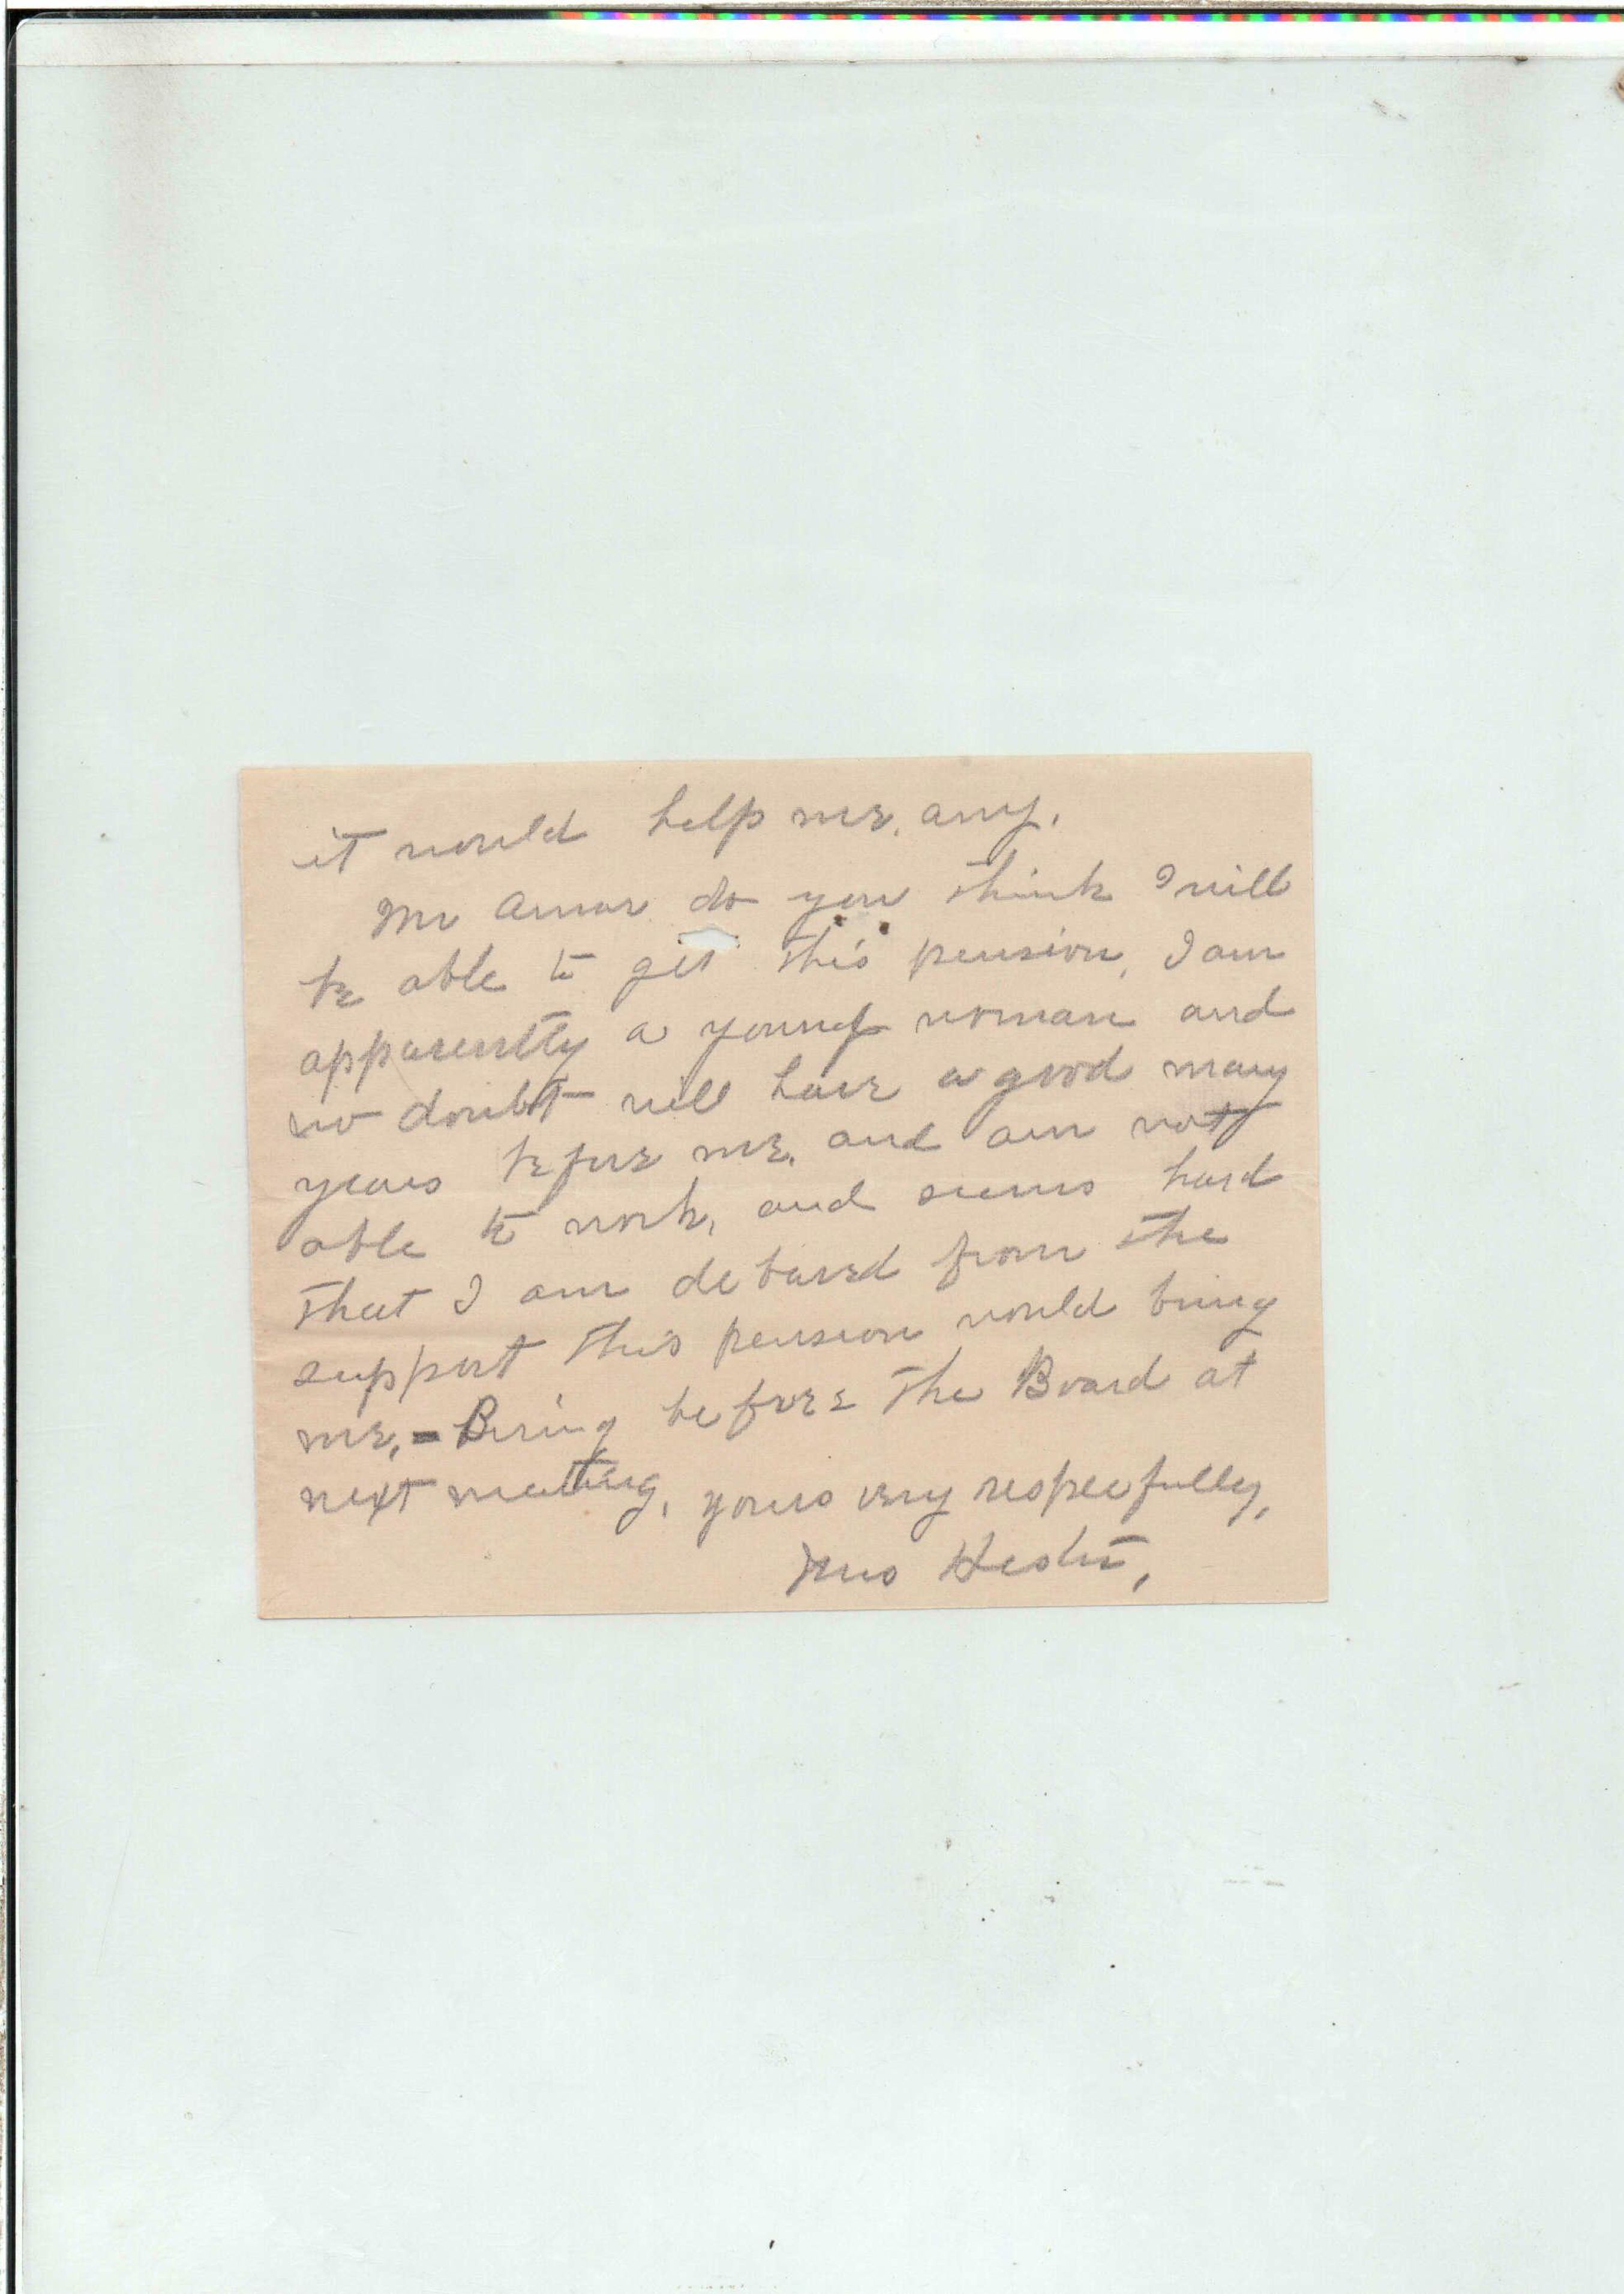 it would help me, any.
Mr Amar do you think I will
be able to get this pension, I am
apparently a young woman and
no doubt will have a good many
years before me, and am not
able to work, and seems hard
that I am debared from the
support this pension would bring
me, - Bring before the Board at
next meeting, yours very respecfully,
Mrs Hester,